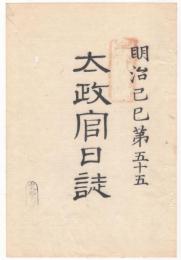 明治己巳第五十五
太政官日誌